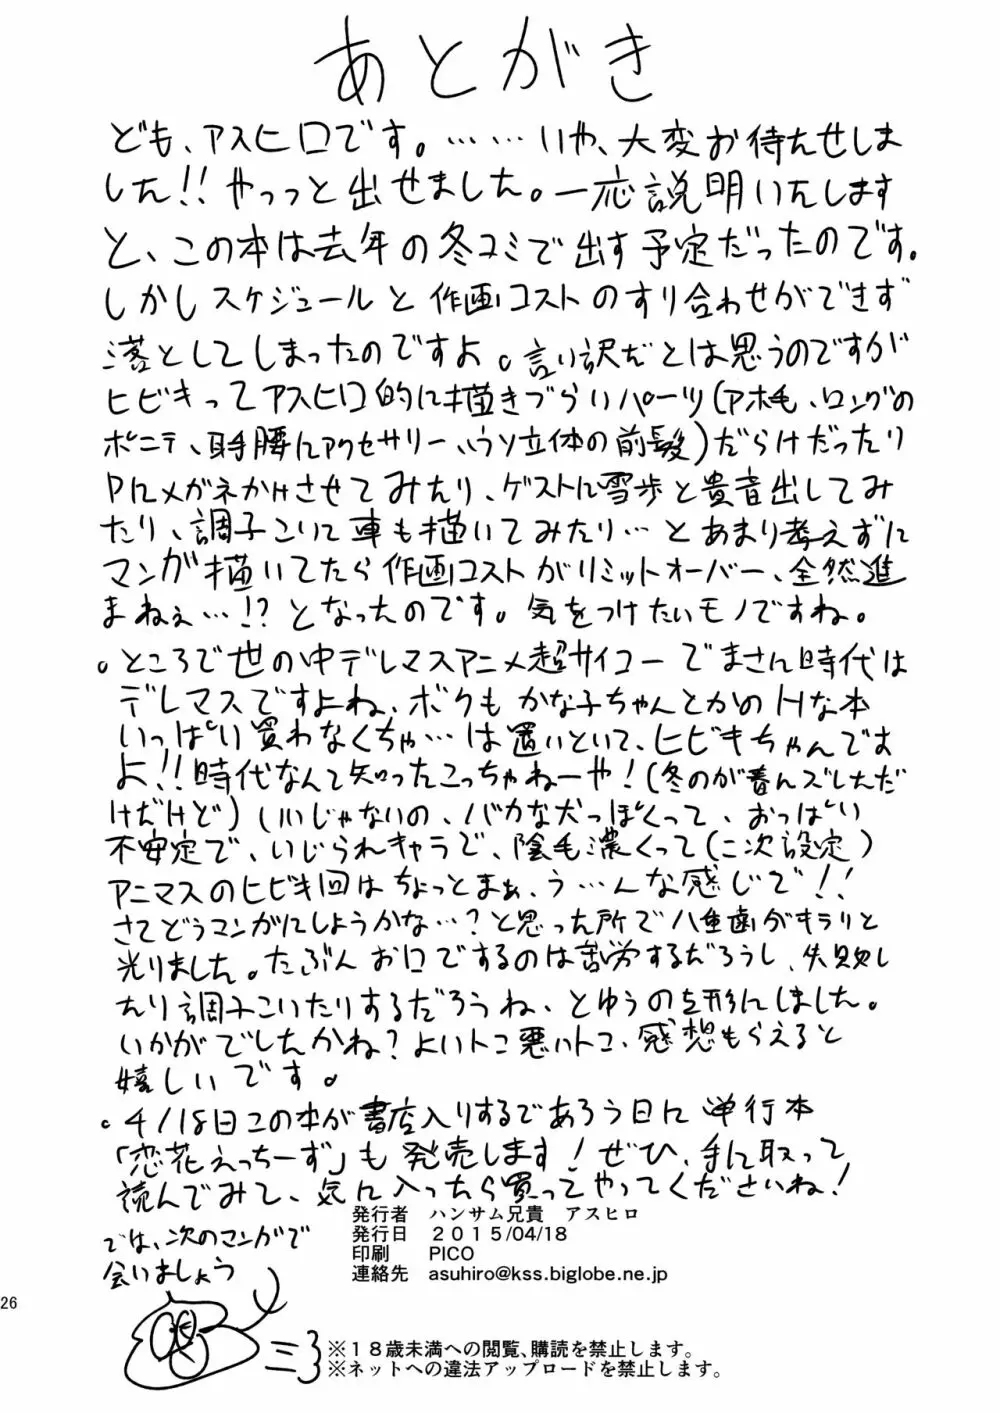 あとがき
ども、アスヒロです。……いや、大変お待たせしま
した!!やっっと出せました。一応説明いたします
と、この本は去年の冬コミで出す予定だったのです。
しかしスケジュールと作画コストのすり合わせができず
落としてしまったのですよ。言い訳だとは思うのですが
ヒビキってアスヒロ的に描きづらいパーツ(アホ毛、ロングの
ポニテ、耳手腰にアクセサリー、ウソ立体の前髪)だらけだったり
Pにメガネかけさせてみたり、ゲストに雪歩と貴音出してみ
たり、調子こいて車も描いてみたり…とあまり考えずに
マンガ描いてたら作画コストがリミットオーバー、全然進
まねぇ…!?となったのです。気をつけたいモノですね。
。ところで世の中デレマスアニメ超サイコーでまさに時代は
デレマスですよね、ボクもかな子ちゃんとかのHな本
いっぱい買わなくちゃ…は置いといて、ヒビキちゃんです
よ!!時代なんて知ったこっちゃねーや!(冬のが春んズレただ
けだけど)いいじゃないの、バカな犬っぽくって、おっぱい
不安定で、いじられキャラで、陰毛濃くって(二次設定)
アニマスのヒビキ回はちょっとまぁ、う…んな感じで!!
さてどうマンガにしようかな…?と思った所で八重歯がキラリと
光りました。たぶんお口でするのは苦労するだろうし、失敗し
たり調子こいたりするだろうね、とゆうのを形にしました。
いかがでしたかね?よいトコ悪いトコ、感想もらえると
嬉しいです。
。4/18日この本が書店入りするであろう日に単行本
「恋花えっちーず」も発売します!ぜひ、手に取って
読んでみて、気に入ったら買ってやってくださいね!
では、次のマンガで
会いましょう
発行者 ハンサム兄貴 アスヒロ
発行日 2015/04/18
印刷 PICO
連絡先 asuhiro@kss.biglobe.ne.jp
26
※18歳未満への閲覧、購読を禁止します。
※ネットへの違法アップロードを禁止します。